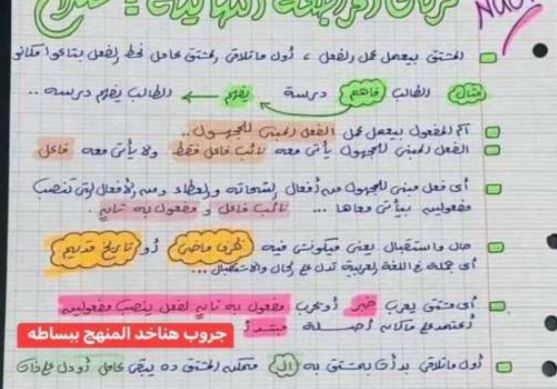 المشتق بيعمل عمل الفعل ، أول ماتلاقي المشتق عامل حط الفعل بتاعه مكانه
مثال الطالب فاهم درسه يفهم ← الطالب يفهم درسه ..
اسم المفعول بيعمل عمل الفعل المبني للمجهول ..
الفعل المبني للمجهول يأتي معه نائب فاعل فقط ولا يأتي معه فاعل
أي فعل مبني للمجهول من أفعال الشحاته والعطاء ومن الأفعال التي تنصب
مفعولين بيأتي معاها ... نائب فاعل و مفعول به ثاني .
حال واستقبال يعني ميكونش فيه ظرف ماضي أو تاريخ قديم
أي جملة في اللغة العربية تدل على الحال والاستقبال ...
أي مشتق يعرب خبر أو يعرب مفعول به ثاني لفعل ينصب مفعولين
اعتمد على ما كان أصله مبتدأ
جروب هناخد المنهج ببساطه
أول ماتلاقي بدأت بمشتق به ال ممكن المشتق ده يبقى عامل لو دل على ذات